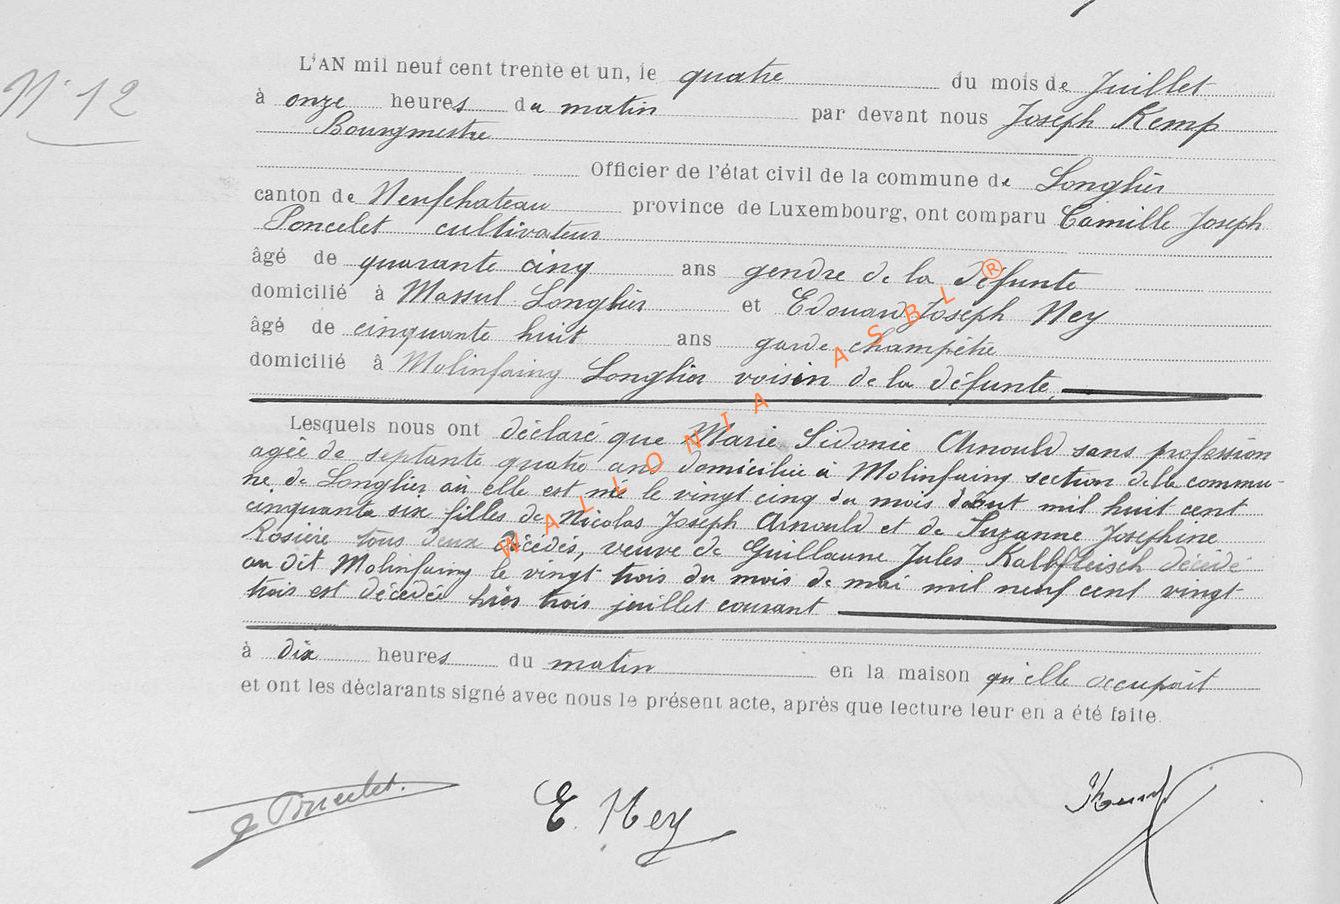 N° 12
L'AN mil neuf cent trente et un, le quatre du mois de Juillet
à onze heures du matin par devant nous Joseph Kemp
Bourgmestre
Officier de l'état civil de la commune de Longlier
canton de Neufchateau province de Luxembourg, ont comparu Camille Joseph
Poncelet cultivateur
âgé de quarante cinq ans gendre de la défunte
domicilié à Massul Longlier et Edouard Joseph Ney
âgé de cinquante huit ans garde champêtre
domicilié à Molinfaing Longlier voisin de la défunte.
Lesquels nous ont déclaré que Marie Sidonie Arnould sans profession
agée de septante quatre ans domiciliée à Molinfaing section de la commu-
ne de Longlier où elle est né le vingt cinq du mois d'aout mil huit cent
cinquante six filles de Nicolas Joseph Arnould et de Suzanne Josephine
Rosière tous deux décédés, veuve de Guillaume Jules Kalbfleisch décédé
au dit Molinfaing le vingt trois du mois de mai mil neuf cent vingt
trois est décédée hier trois juillet courant
à dix heures du matin en la maison qu'elle occupait
et ont les déclarants signé avec nous le présent acte, après que lecture leur en a été faite.
Poncelet. E. Ney
WALLONIA ASBL ®